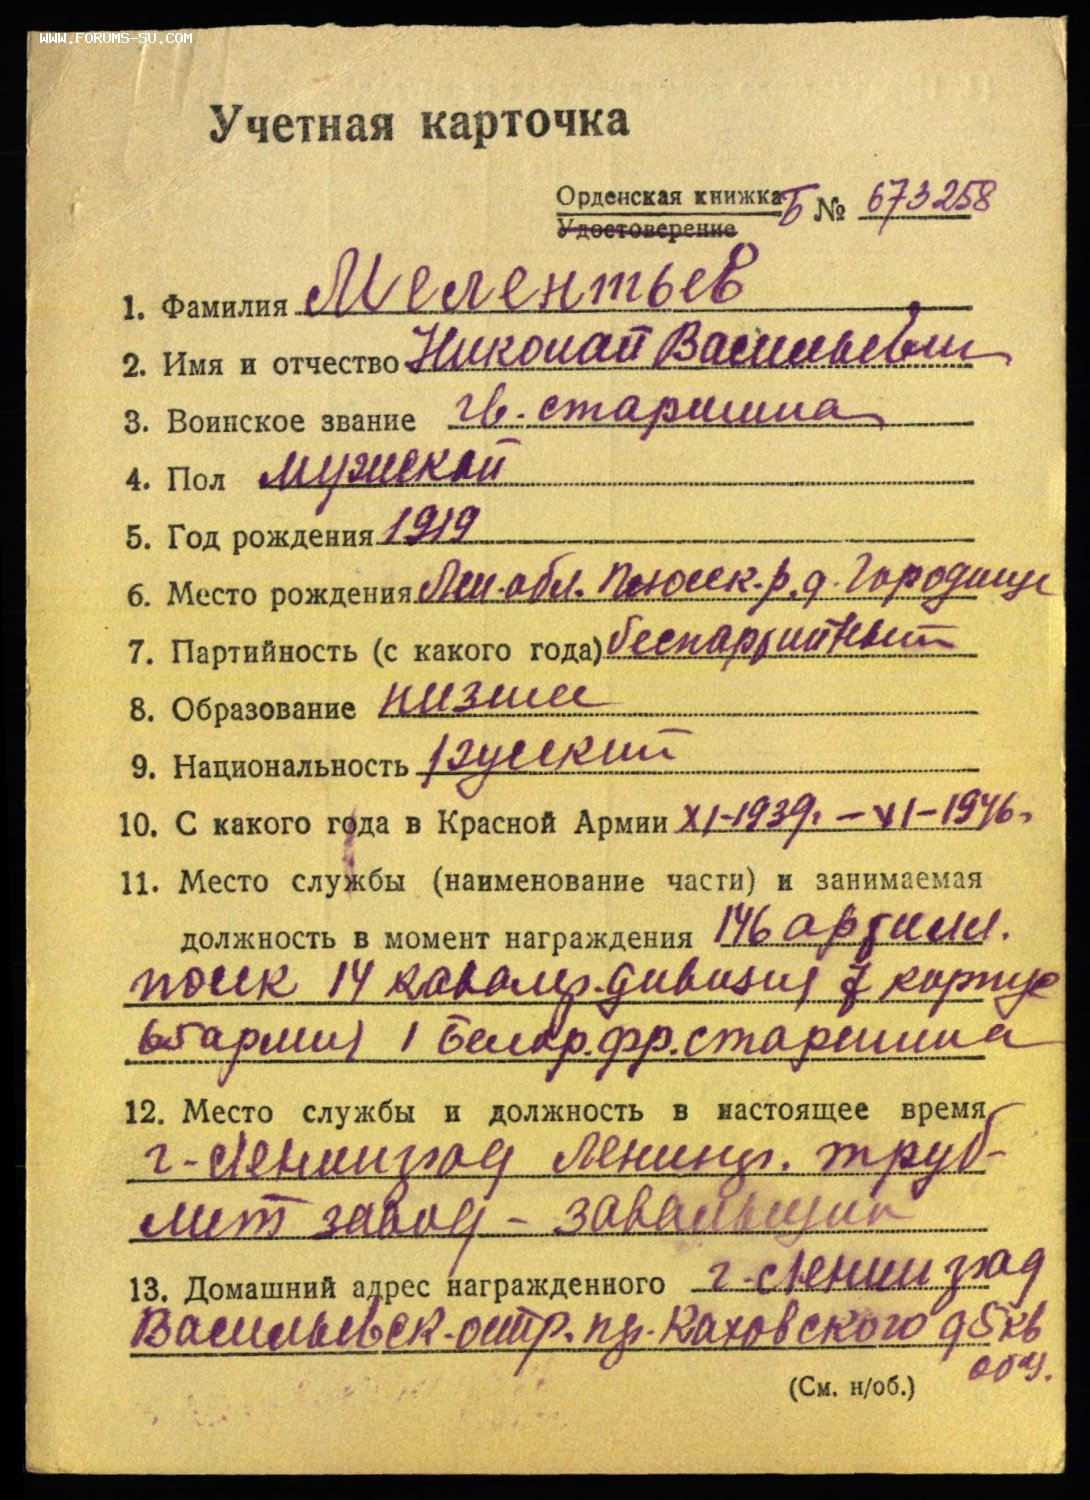 WWW.FORUMS-SU.COM
Учетная карточка
Орденская книжка Б № 673258
Удостоверение
1. Фамилия Мелентьев
2. Имя и отчество Николай Васильевич
3. Воинское звание гв. старшина
4. Пол мужской
5. Год рождения 1919
6. Место рождения Лен. обл. Плюсск. р. д. Городище
7. Партийность (с какого года) беспартийный
8. Образование низшее
9. Национальность русский
10. С какого года в Красной Армии XI-1939г. – VI-1946г.
11. Место службы (наименование части) и занимаемая
должность в момент награждения 146 артилл.
полк 14 кавалер. дивизия 7 корпус
65 армия 1 Белор. фр. старшина
12. Место службы и должность в настоящее время
г-Ленинград Ленингр. труб-
лит завод – завальщик
13. Домашний адрес награжденного г-Ленинград
Васильевск. остр. пр. Каховского д 5 кв
общ.
(См. н/об.)